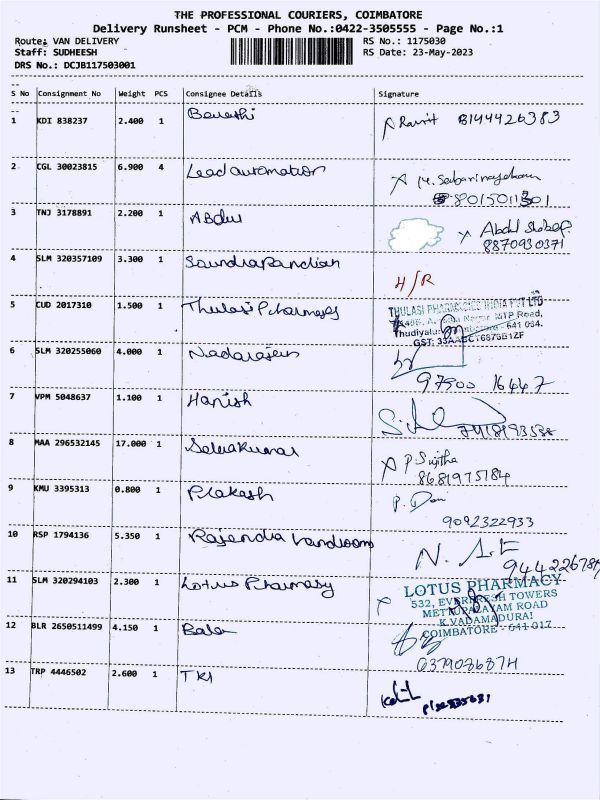 THE PROFESSIONAL COURIERS, COIMBATORE
Delivery Runsheet - PCM - Phone No.:0422-3505555 - Page No.:1
Route: VAN DELIVERY RS No.: 1175030
Staff: SUDHEESH RS Date: 23-May-2023
DRS No.: DCJB117503001
S No Consignment No Weight PCS Consignee Details Signature
1 KDI 838237 2.400 1
2 CGL 30023815 6.900 4 Lead automation
8015011301
3 TNJ 3178891 2.200 1 Abdul
8870930371
4 SLM 320357109 3.300 1 Soundrapandian H/R
5 CUD 2017310 1.500 1 Thulasi Pharmacy THULASI PHARMACIES INDIA PVT LTD
MTP Road,
641 034.
6 SLM 320255060 4.000 1 Nadarajan
97900 16447
7 VPM 5048637 1.100 1 Harish
8 MAA 296532145 17.000 1 Selvakumar P. Sujitha
8681975184
9 KMU 3395313 0.800 1 Prakash
9092322933
10 RSP 1794136 5.350 1 Rajendra
11 SLM 320294103 2.300 1 Lotus Pharmacy LOTUS PHARMACY
532, EVERFRESH TOWERS
METTUPALAYAM ROAD
K.VADAMADURAI
COIMBATORE - 641 017
12 BLR 2650511499 4.150 1 Bala
13 TRP 4446502 2.600 1 TKI